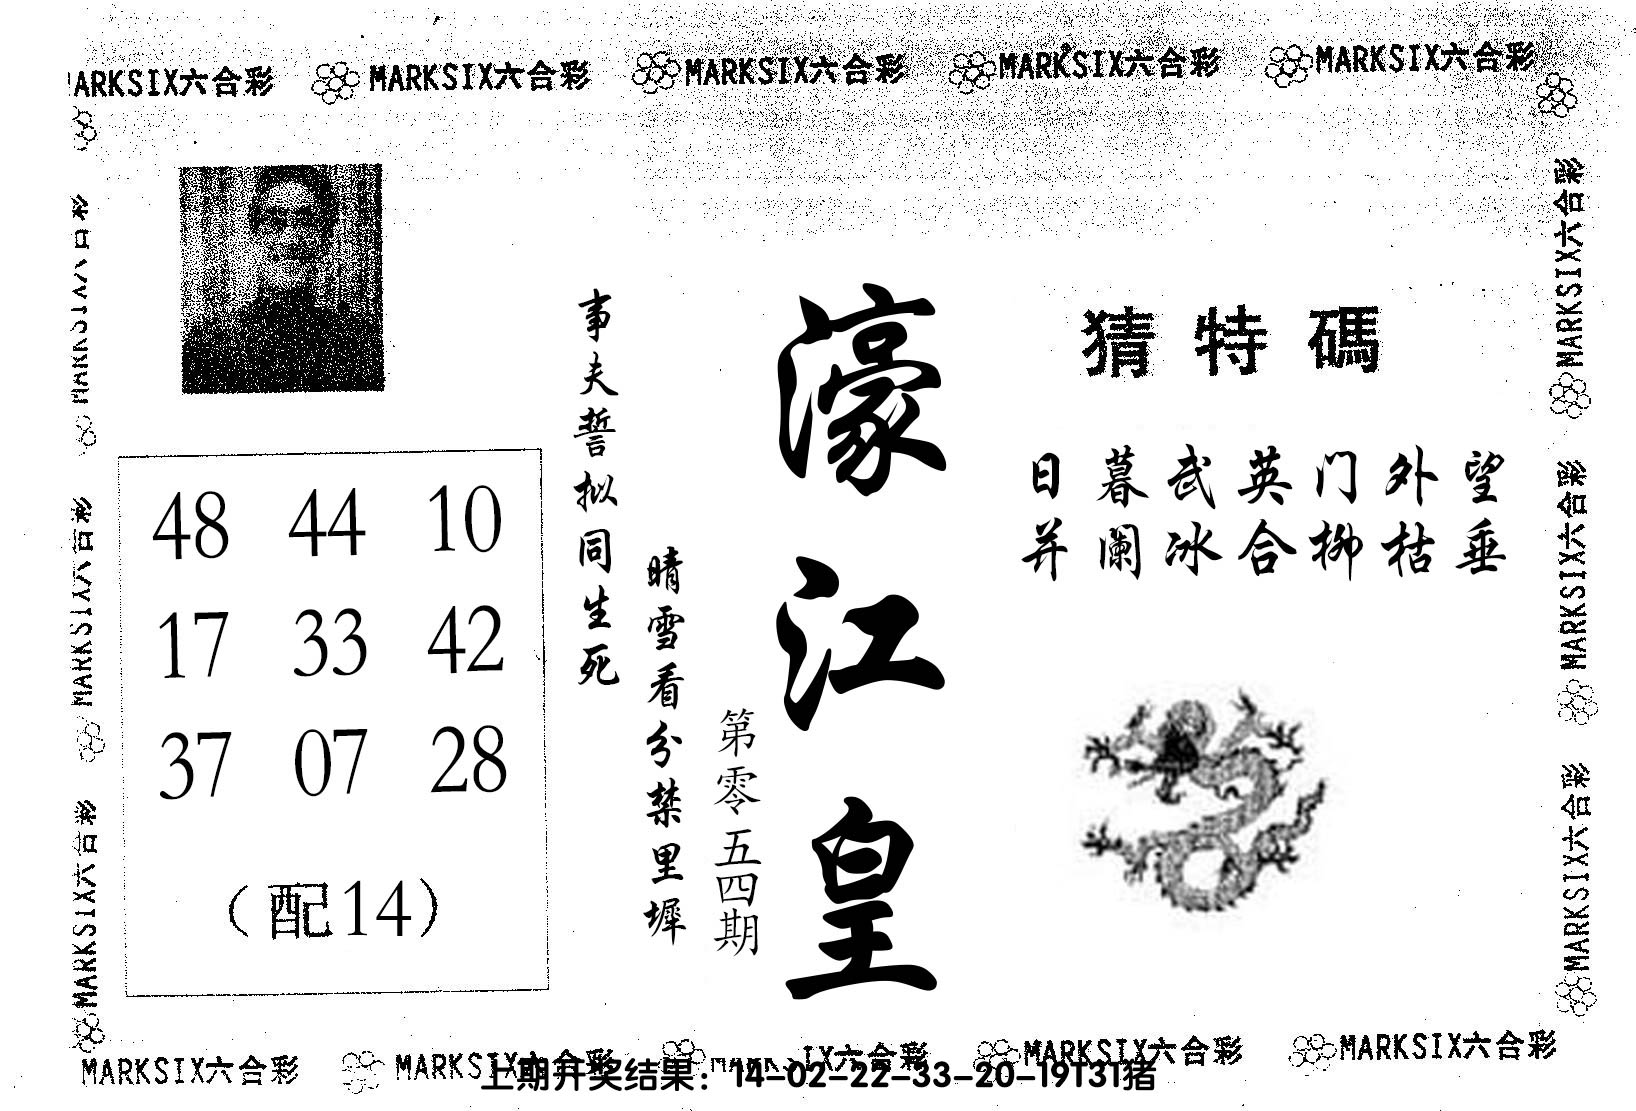 MARKSIX六合彩 MARKSIX六合彩 MARKSIX六合彩 MARKSIX六合彩 MARKSIX六合彩
猜特碼
日暮武英门外望
并阑冰合柳枯垂
濠江皇
第零五四期
晴雪看分禁里墀
事夫誓拟同生死
48 44 10
17 33 42
37 07 28
（配14）
MARKSIX六合彩
MARKSIX六合彩
MARKSIX六合彩
MARKSIX六合彩
MARKSIX六合彩
MARKSIX六合彩
MARKSIX六合彩 MARKSIX六合彩 MARKSIX六合彩 MARKSIX六合彩 MARKSIX六合彩
上期开奖结果：14-02-22-33-20-19T31猪